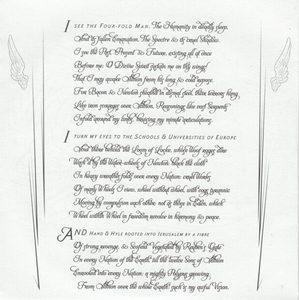 I see the Four-fold Man. The Humanity in deadly sleep,
And its fallen Emanation, The Spectre & its cruel Shadow.
I see the Past, Present & Future, existing all at once
Before me: O Divine Spirit sustain me on thy wings!
That I may awake Albion from his long & cold repose.
For Bacon & Newton sheath'd in dismal steel, their terrors hang
Like iron scourges over Albion, Reasonings like vast Serpents
Infold around my limbs, bruising my minute articulations.
I turn my eyes to the Schools & Universities of Europe
And there behold the Loom of Locke, whose Woof rages dire
Wash'd by the Water-wheels of Newton. black the cloth
In heavy wreathes folds over every Nation: cruel Works
Of many Wheels I view, wheel without wheel, with cogs tyrannic
Moving by compulsion each other: not as those in Eden, which
Wheel within Wheel in freedom revolve in harmony & peace.
And Hand & Hyle rooted into Jerusalem by a fibre
Of strong revenge, & Skofeld Vegetated by Reuben's Gate
In every Nation of the Earth, till the twelve Sons of Albion
Enrooted into every Nation: a mighty Polypus growing
From Albion over the whole Earth: such is my awful Vision.